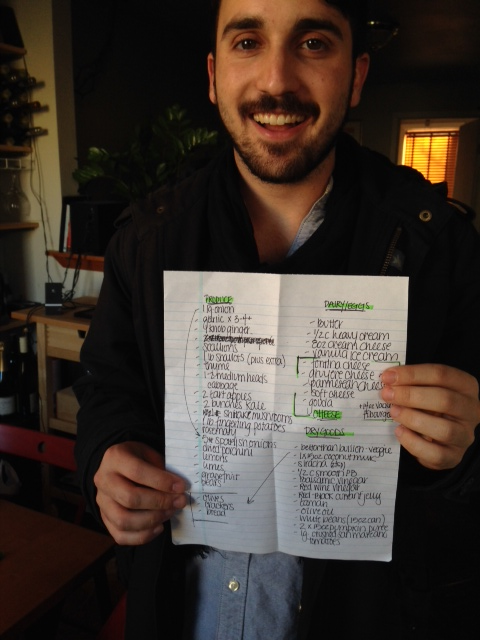 PRODUCE
1 lg onion
garlic x 3-4+
4 knob ginger
scallions
1 lb shallots (plus extra)
thyme
1-2 medium heads
cabbage
2 tart apples
2 bunches kale
shiitake mushrooms
1 lb fingerling potatoes
rosemary
5 spanish onions
dried porcini
lemons
limes
grapefruit
pears
olives
crackers
bread
DAIRY/EGGS
- butter
- 1/2 c heavy cream
- 8oz cream cheese
- vanilla ice cream
- fontina cheese
- gruyere cheese
- parmesan cheese
- soft cheese
- gouda
CHEESE
DRY GOODS
- better than bullion - veggie
- 1x 15oz coconut milk
- sriracha
- 1/2 c smooth PB
- balsamic vinegar
- Red wine vinegar
- Red/black currant jelly
- olive oil
- White beans (15oz can)
- 2 x 15oz pumpkin puree
- crushed san marzano
tomatoes